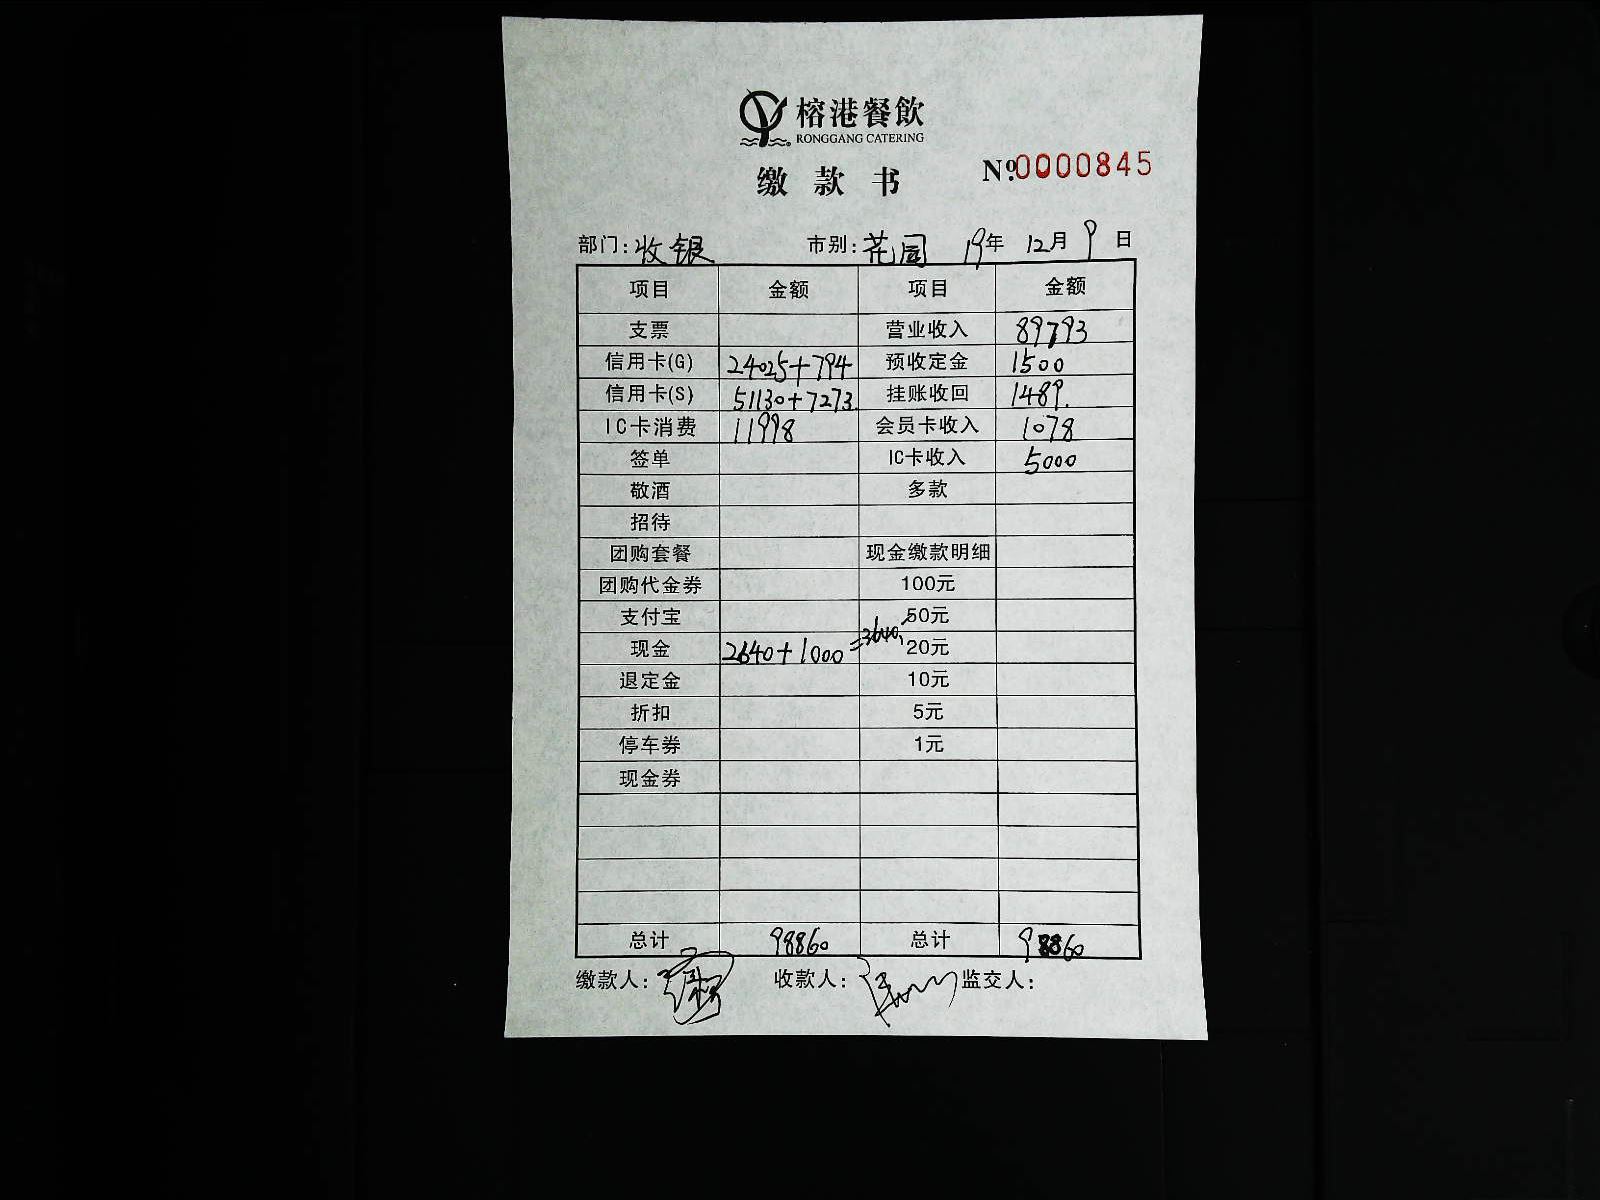 榕港餐飲
RONGGANG CATERING
缴款书 №0000845
部门:收银 市别:花园 19年 12月 9日
项目 金额 项目 金额
支票 营业收入 89793
信用卡(G) 24025+794 预收定金 1500
信用卡(S) 51130+7273. 挂账收回 1489.
IC卡消费 11998 会员卡收入 1078
签单 IC卡收入 5000
敬酒 多款
招待
团购套餐 现金缴款明细
团购代金券 100元
支付宝 50元
现金 2640+1000=3640, 20元
退定金 10元
折扣 5元
停车券 1元
现金券
总计 98860 总计 98860
缴款人: 收款人: 监交人: